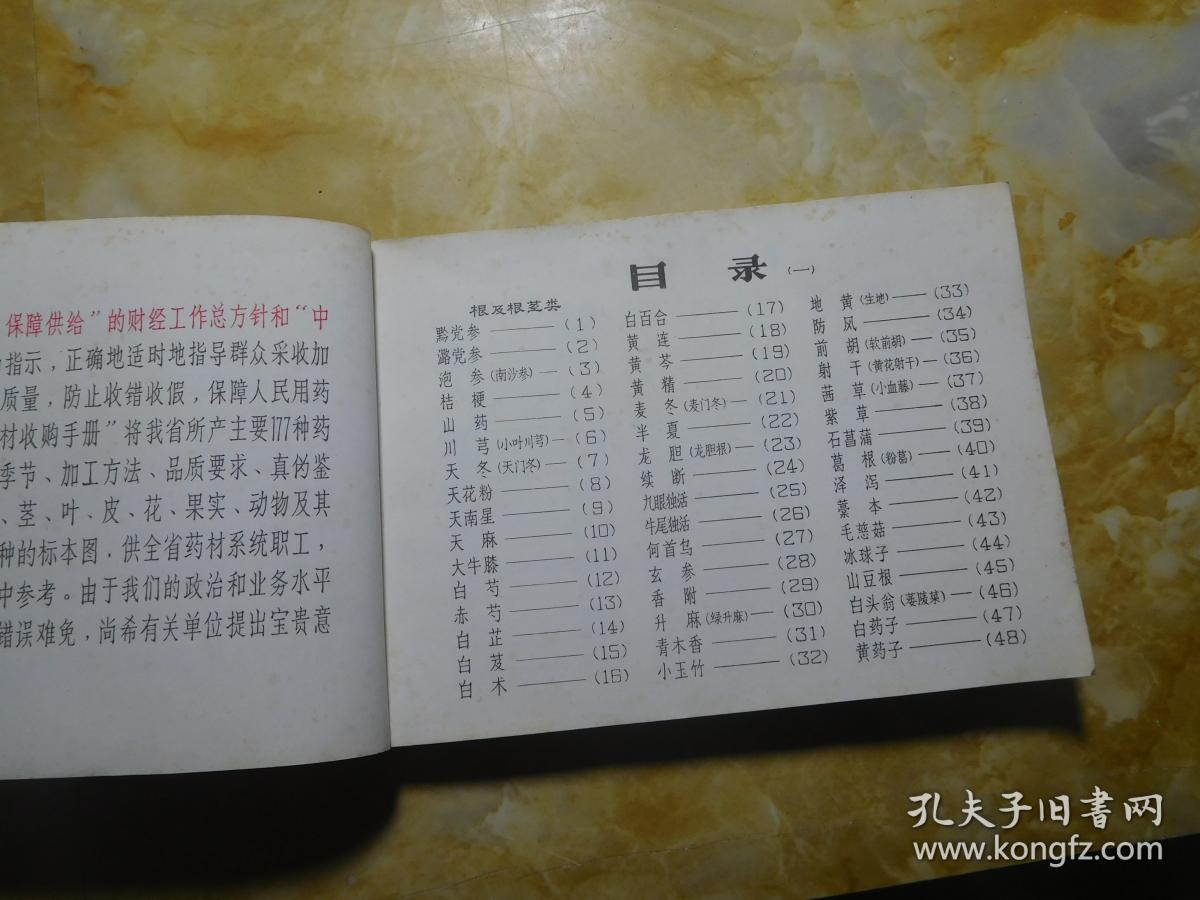 保障供给”的财经工作总方针和“中
指示，正确地适时地指导群众采收加
质量，防止收错收假，保障人民用药
材收购手册”将我省所产主要177种药
季节、加工方法、品质要求、真伪鉴
、茎、叶、皮、花、果实、动物及其
种的标本图，供全省药材系统职工，
中参考。由于我们的政治和业务水平
错误难免，尚希有关单位提出宝贵意
目 录 (一)
根及根茎类
黔党参——(1)
潞党参——(2)
泡 参(南沙参)—(3)
桔 梗——(4)
山 药——(5)
川 芎(小叶川芎)—(6)
天 冬(天门冬)—(7)
天花粉——(8)
天南星——(9)
天 麻——(10)
大牛膝——(11)
白 芍——(12)
赤 芍——(13)
白 芷——(14)
白 芨——(15)
白 术——(16)
白百合——(17)
黄 连——(18)
黄 芩——(19)
黄 精——(20)
麦 冬(麦门冬)—(21)
半 夏——(22)
龙 胆(龙胆根)—(23)
续 断——(24)
九眼独活——(25)
牛尾独活——(26)
何首乌——(27)
玄 参——(28)
香 附——(29)
升 麻(绿升麻)—(30)
青木香——(31)
小玉竹——(32)
地 黄(生地)——(33)
防 风——(34)
前 胡(软前胡)—(35)
射 干(黄花射干)—(36)
茜 草(小血藤)—(37)
紫 草——(38)
石菖蒲——(39)
葛 根(粉葛)——(40)
泽 泻——(41)
藁 本——(42)
毛慈菇——(43)
冰球子——(44)
山豆根——(45)
白头翁(蒌陵菜)—(46)
白药子——(47)
黄药子——(48)
孔夫子旧书网
www.kongfz.com